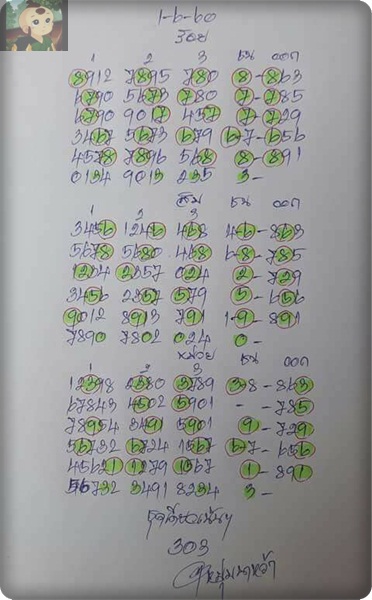 1-6-60
ร้อย
1 2 3 ชน ออก
8912 7895 780 8-863
6790 5673 780 7-785
6790 9017 457 7-729
3467 5673 679 67-656
4578 7896 568 8-891
0134 9013 235 3-
สิบ ชน ออก
1 2 3
3456 1246 468 46-863
5678 5680 468 68-785
1204 2857 024 2-729
3456 2857 579 5-656
9012 8913 791 1-9-891
7890 7802 024 0-
หน่วย ชน ออก
1 2 3
12398 2380 3789 38-863
67843 4502 5901 - -785
78954 3491 5901 9-729
56732 6724 1567 67-656
45621 1279 1567 1-891
56732 3491 8234 3-
303